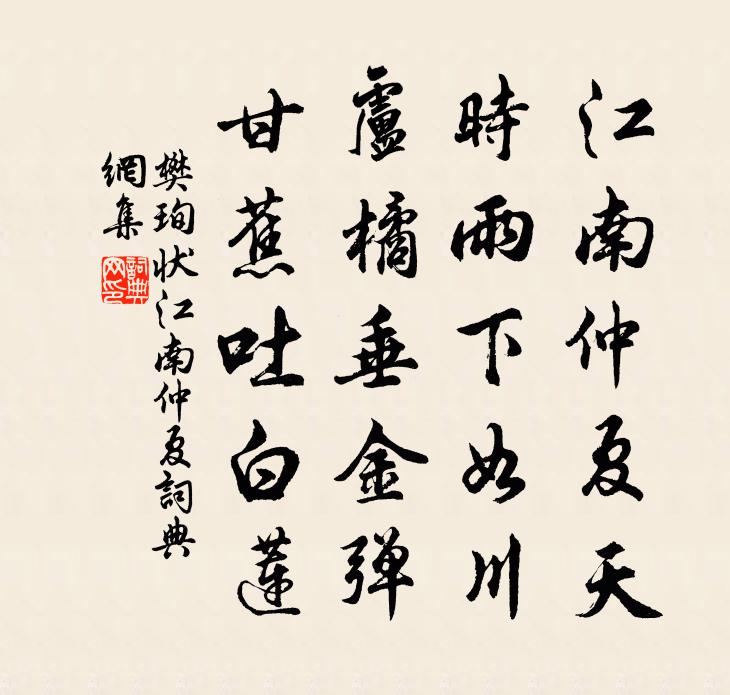 江南仲夏天
時雨下如川
盧橘垂金彈
甘蕉吐白蓮
樊珣狀江南仲夏詞典
網集
詞典
网印